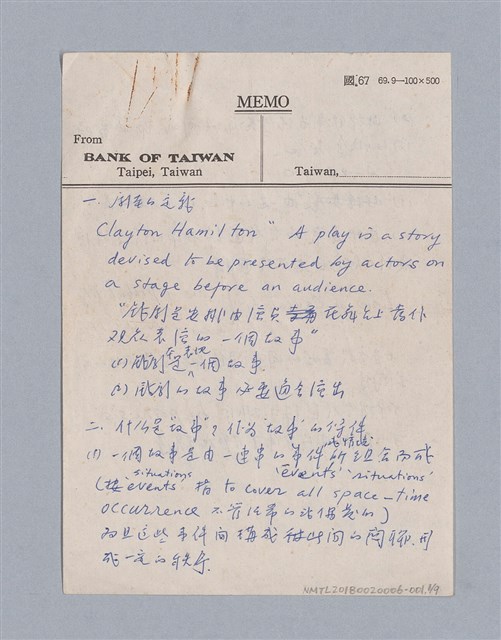 國.67 69.9—100×500
MEMO
From
BANK OF TAIWAN
Taipei, Taiwan
Taiwan,
一、的定義
Clayton Hamilton " A play is a story
devised to be presented by actors on
a stage before an audience.
"戲劇是安排由演員在舞台上當作
观众表演的一個故事"
(1) 戲劇是表現一個故事.
(2) 戲劇的故事必要適合演出
二、什么是"故事"? 作为"故事"的條件
(1) 一個故事是由一連串的事件或情境所組合而成
'events' 'situations'
situations
('events' 指 to cover all space-time
occurrence 不管的或偶的)
而且这些事件间構成彼此间的関聯.
成一定的秩序.
NMTL20180020006-001.1/9